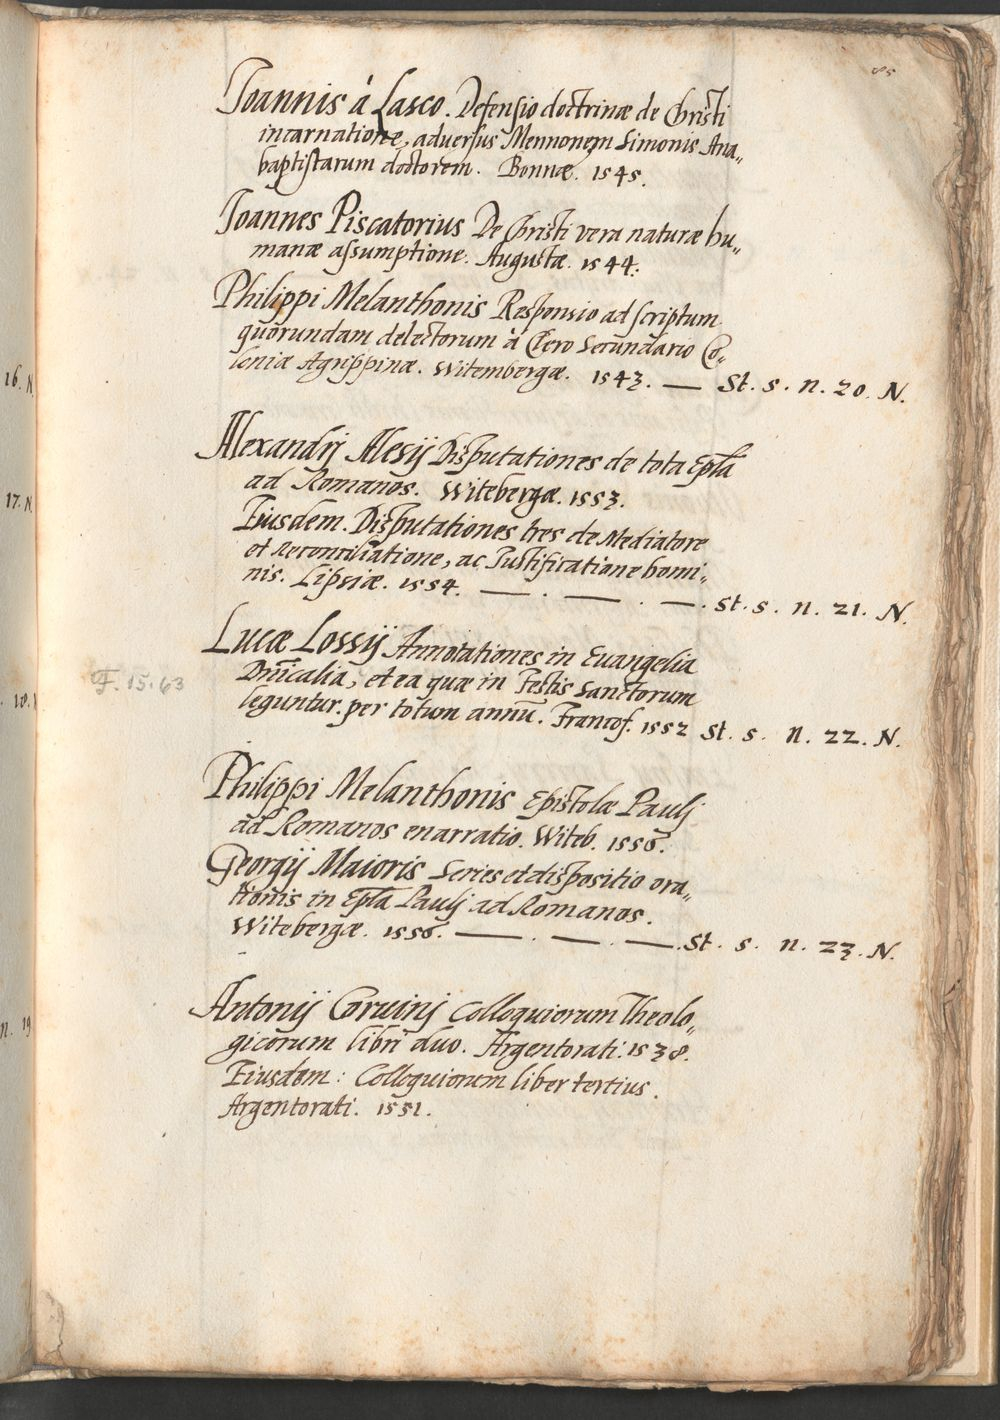 85
Joannis á Lasco. Defensio doctrinæ de Christi
incarnatione, adversus Mennonem Simonis Ana„
baptistarum doctorem. Bonnæ. 1545.
Joannes Piscatorius De Christi vera naturæ hu„
manæ assumptione. Augustæ. 1544.
Philippi Melanthonis Responsio ad scriptum
quorundam delectorum à Clero Secundario Co„
loniæ Agrippinæ. Witembergæ. 1543. — St. s. n. 20. N.
16. N.
Alexandrj Alesij Disputationes de tota Epl̃a
ad Romanos. Witebergæ. 1553.
17. N.
Eiusdem. Disputationes tres de Mediatore
et Reconciliatione, ac Justificatione homi„
nis. Lipsiæ. 1554. — . — . — . St. s. n. 21. N.
Lucæ Lossij Annotationes in Evangelia
Dnĩcalia, et ea quæ in Festis Sanctorum
F. 15.63
leguntur. per totum annũ. Francof. 1552 St. s. n. 22. N.
18.
Philippi Melanthonis Epistolæ Paulj
ad Romanos enarratio. Witeb. 1556.
Georgij Maioris Series et dispositio ora„
tionis in Epl̃a Paulj ad Romanos.
Witebergæ. 1556. — . — . — . St. s. n. 23. N.
Antonij Corvinj Colloquiorum Theolo„
n. 19
gicorum libri duo. Argentorati. 1538.
Eiusdem: Colloquiorum liber tertius.
Argentorati. 1551.